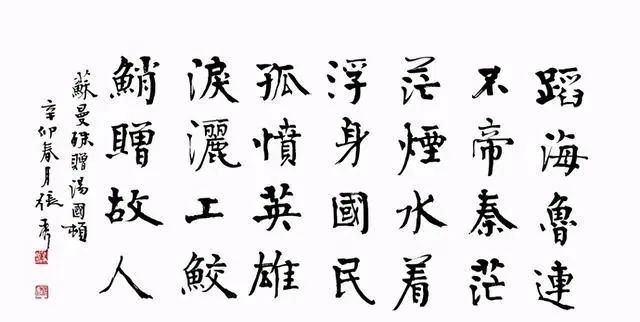 蹈海魯連
不帝秦茫
茫煙水着
浮身國民
孤憤英雄
淚灑上鮫
鮹贈故人
蘇曼殊贈湯國頓
辛卯春月張秀